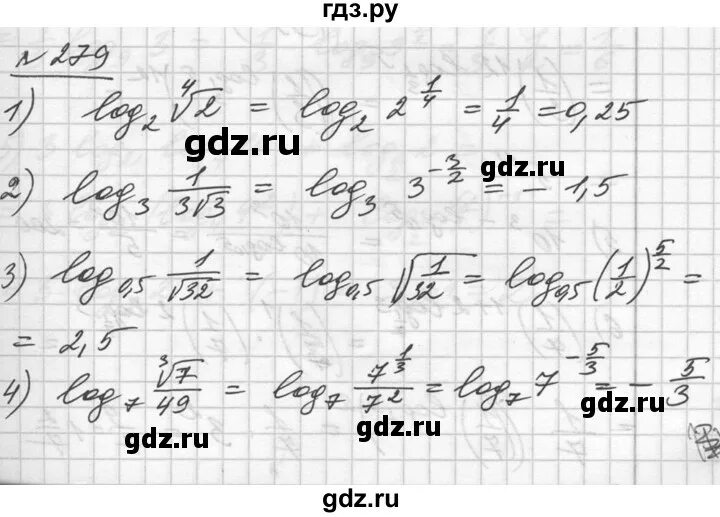 гдз.ру
№ 279
1) log₂ ⁴√2 = log₂ 2^(1/4) = 1/4 = 0,25
gdz.ru
gdz.ru
2) log₃ 1/(3√3) = log₃ 3^(-3/2) = - 1,5
3) log₀,₅ 1/√32 = log₀,₅ √(1/32) = log₀,₅ (1/2)^(5/2) =
= 2,5
gdz.ru
4) log₇ ³√7/49 = log₇ 7^(1/3)/7² = log₇ 7^(-5/3) = - 5/3
gdz.ru
gdz.ru
gdz.ru
gdz.ru